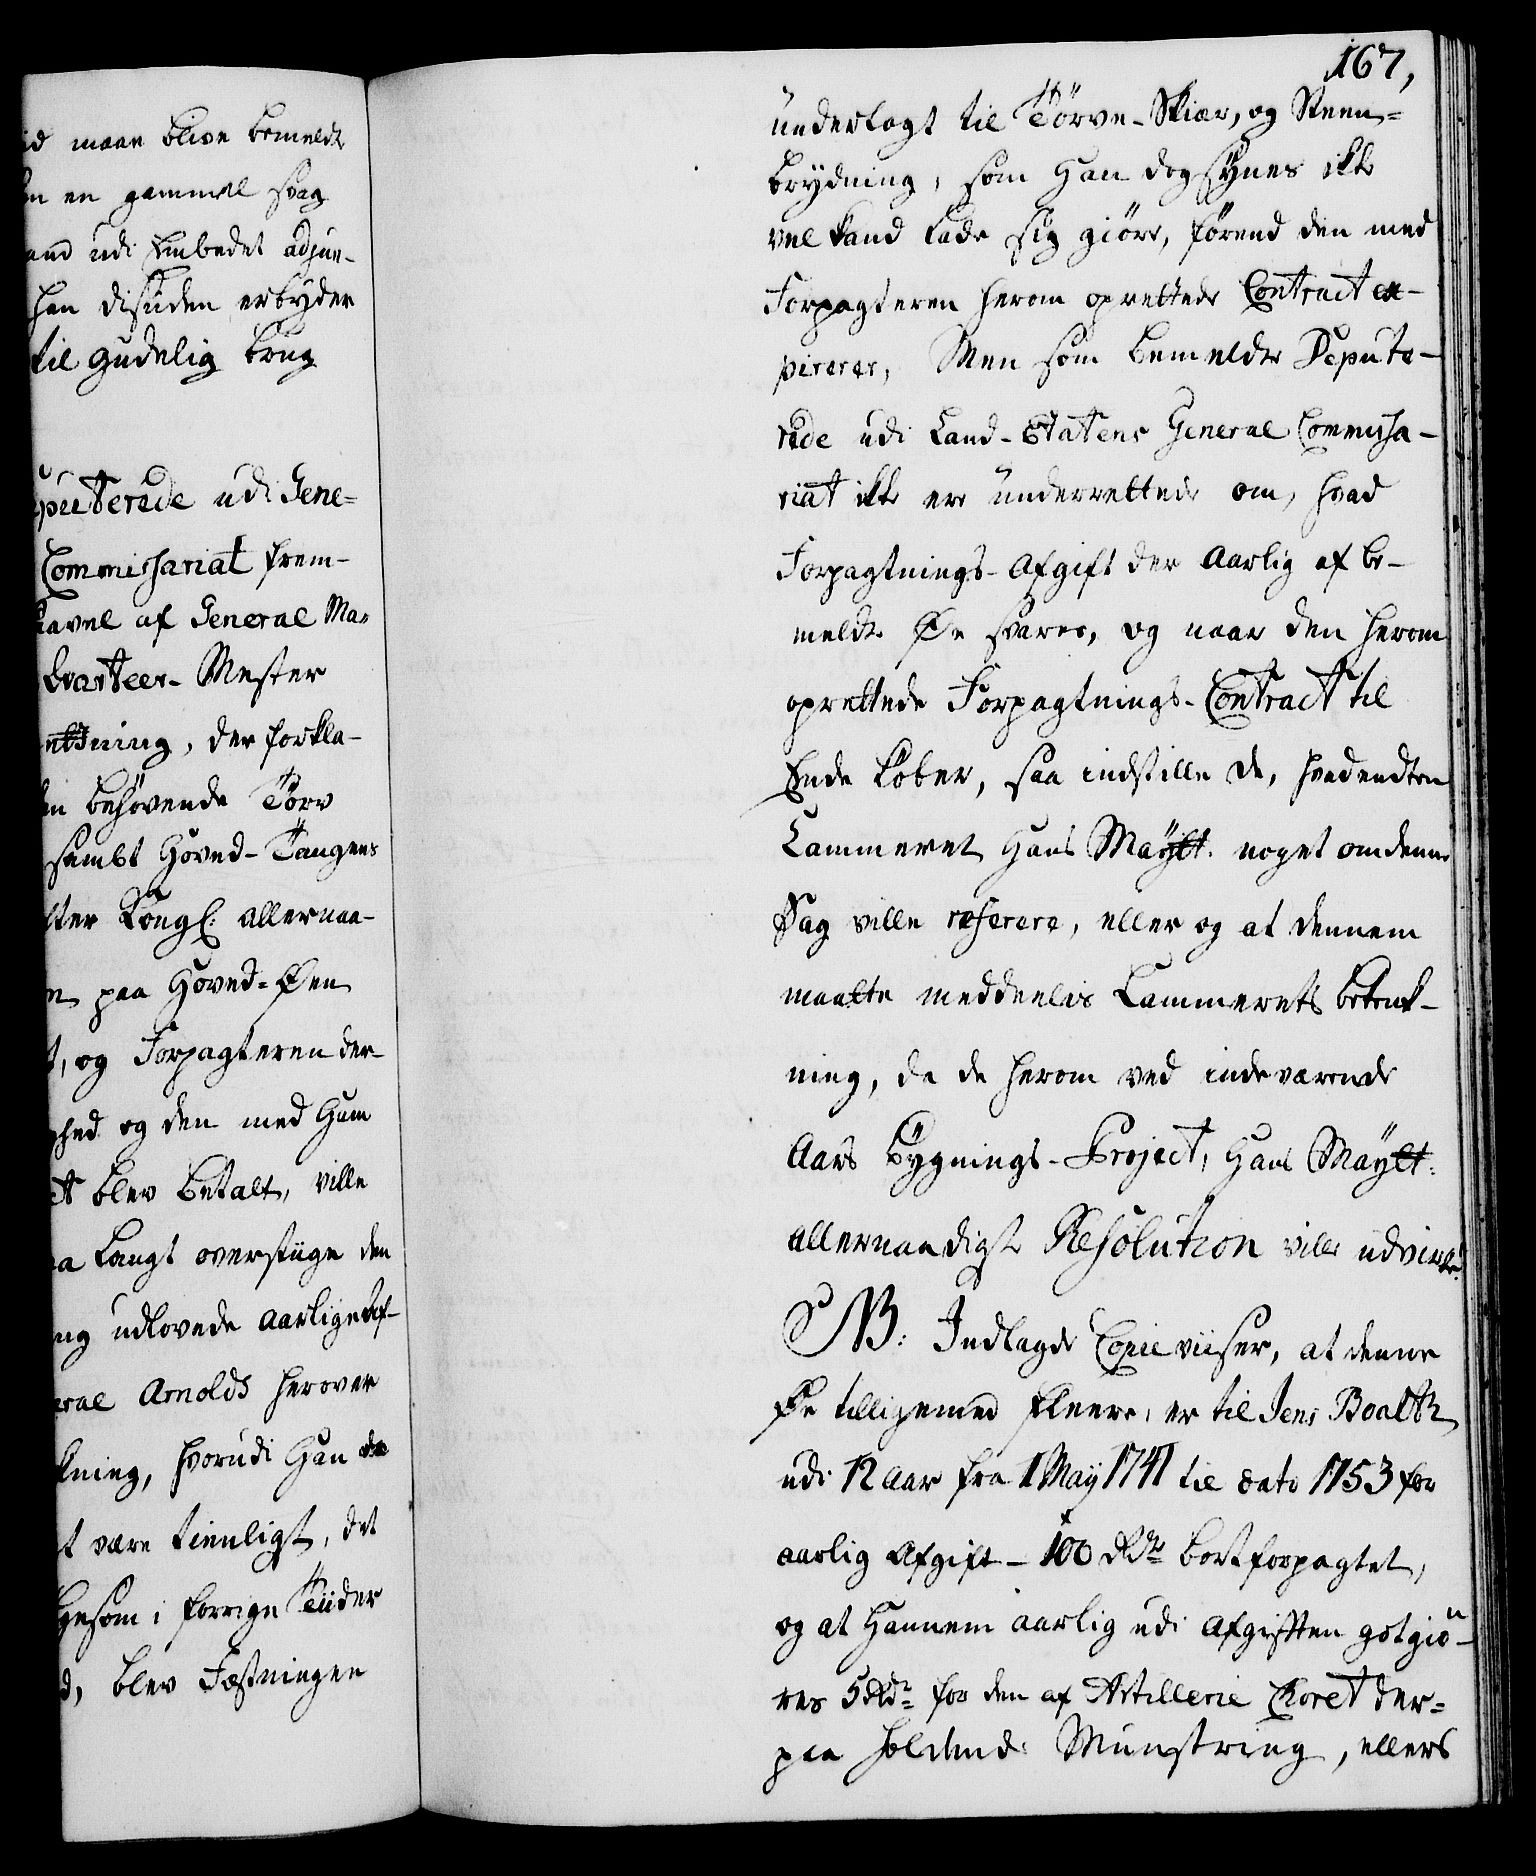 id maae blive bemeldte
en gammel svag
and udi Embedet adjun-
han desuden erbyder
til gudelig brug
puterede udi Gene=
Commissariat frem-
Navel af General Ma-
Qvarteer-Mester
retning, der forkla-
en behøvende Törv
sambt Hoved-Tangens
ter Kongl: allernaa-
paa Hoved=Øen
t, og Forpagteren der-
hed og den med Ham
et blev betalt, ville
a langt overstiige den
ng udlovede aarlige Af-
eral Arnolds herover
kning, hvorudi Han
t være tienligt, det
gesom i forrige Tiider
d, blev Fæstningen
167,
underlagt til Törve-Skiær, og Steen=
brydning, som Han dog synes ikke
vel kand lade sig giöre, förend den med
Forpagteren herom oprettede Contract ex-
pirerer, Men som bemeldte Depute-
rede udi Land-Etatens General Commissa-
riat ikke ere underrettede om, hvad
Forpagtnings-Afgift der aarlig af be-
meldte Øe svares, og naar den herom
oprettede Forpagtnings-Contract til
Ende löber, saa indstille de, hvad endten
Cammeret Hans Maÿtt. noget om denne
Sag ville referere, eller og at dennem
maatte meddeelis Cammerets betenk-
ning, da de herom ved indeværende
Aars Bÿgnings-Project, Hans Maÿtt.
allernaadigste Resolution ville udvirke.
NB: Indlagde Copie viiser, at denne
Øe tilligemed fleere, er til Jens Boalth
udi 12 Aar fra 1 Maÿ 1741 til dato 1753 for
aarlig Afgift - 100 Rdr bortforpagtet,
og at Hannem aarlig udi Afgifften gotgiö-
res 5 Rdr for den af Artillerie Choret der=
paa holdende Munstring, ellers